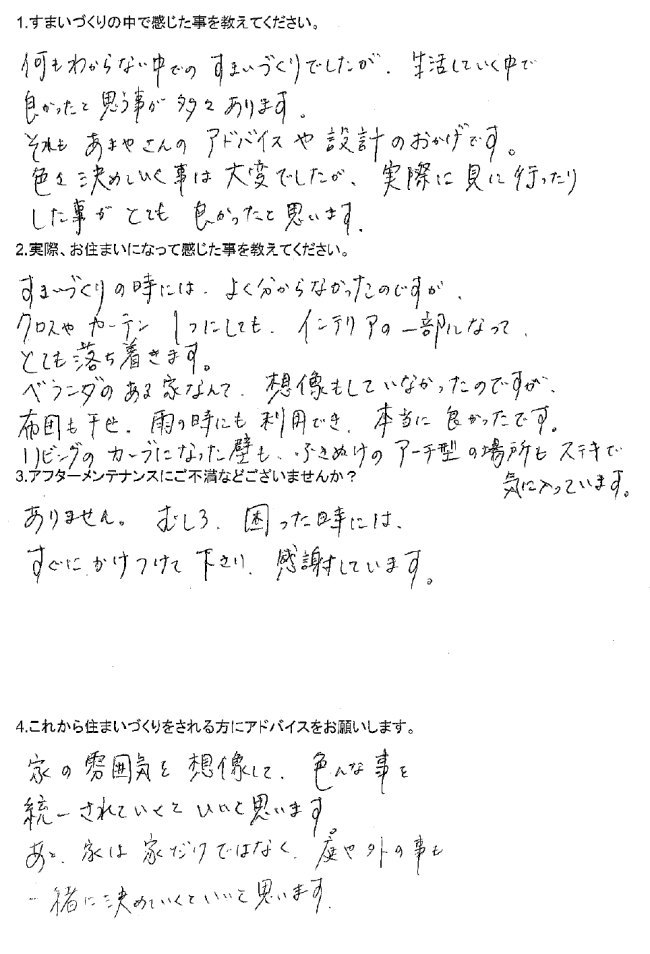 1.すまいづくりの中で感じた事を教えてください。
何もわからない中での すまいづくりでしたが、生活していく中で
良かったと思う事が多々あります。
それも あまやさんの アドバイスや設計のおかげです。
色を決めしいく事は大変でしたが、実際に見に行ったり
した事が とても 良かったと思います。
2.実際、お住まいになって感じた事を教えてください。
すまいづくりの時には、よく分からなかったのですが、
クロスや カーテン 1つにしても、インテリアの一部になって、
とても落ち着きます。
ベランダのある家なんて、想像もしていなかったのですが、
布団も干せ、雨の時にも利用でき、本当に良かったです。
リビングの カーブになった壁も、ふきぬけの アーチ型の場所も ステキで
気に入っています。
3.アフターメンテナンスにご不満などございませんか？
ありません。むしろ、困った時には、
すぐに かけつけて 下さり、感謝しています。
4.これから住まいづくりをされる方にアドバイスをお願いします。
家の雰囲気を想像して、色んな事を
統一されていくと いいと思います
あと、家は家だけではなく、庭や外の事も
一緒に決めていくといいと思います。